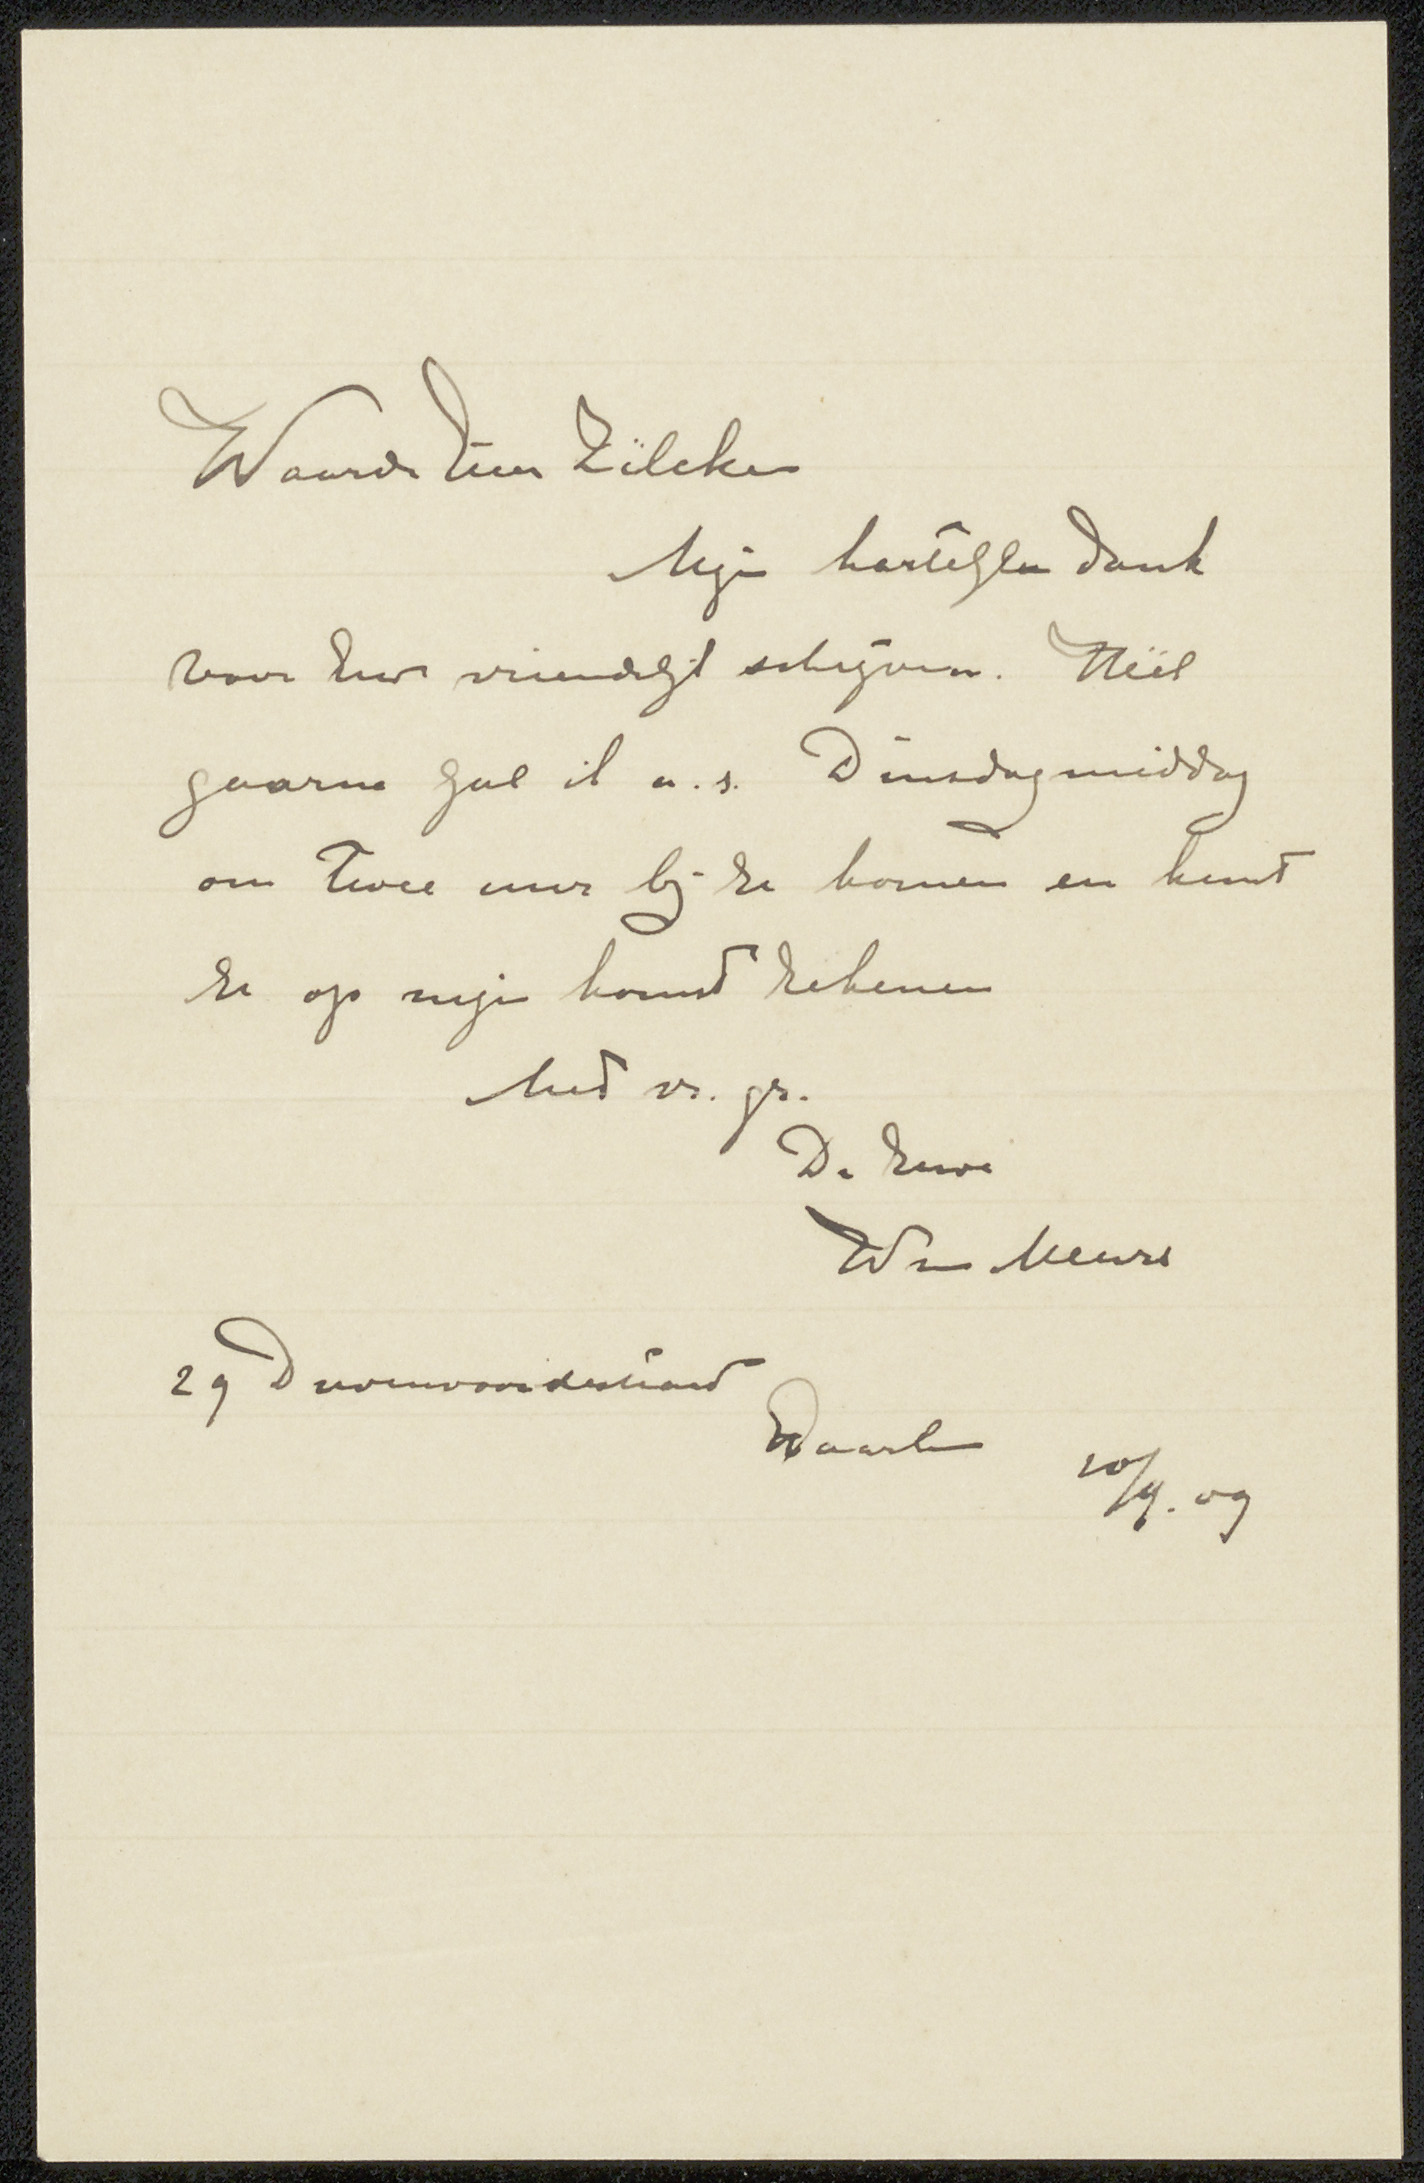 Waarde Heer Zilcken
Mijn hartelijken dank
voor Uw vriendelijk schrijven. Heel
gaarne zal ik a.s. Dinsdagmiddag
om twee uur bij U komen en kunt
U op mijn komst rekenen
Met vr. gr.
De Uwe
Wm Meurs
29 Duvenvoordestraat
Haarlem
20/9.09